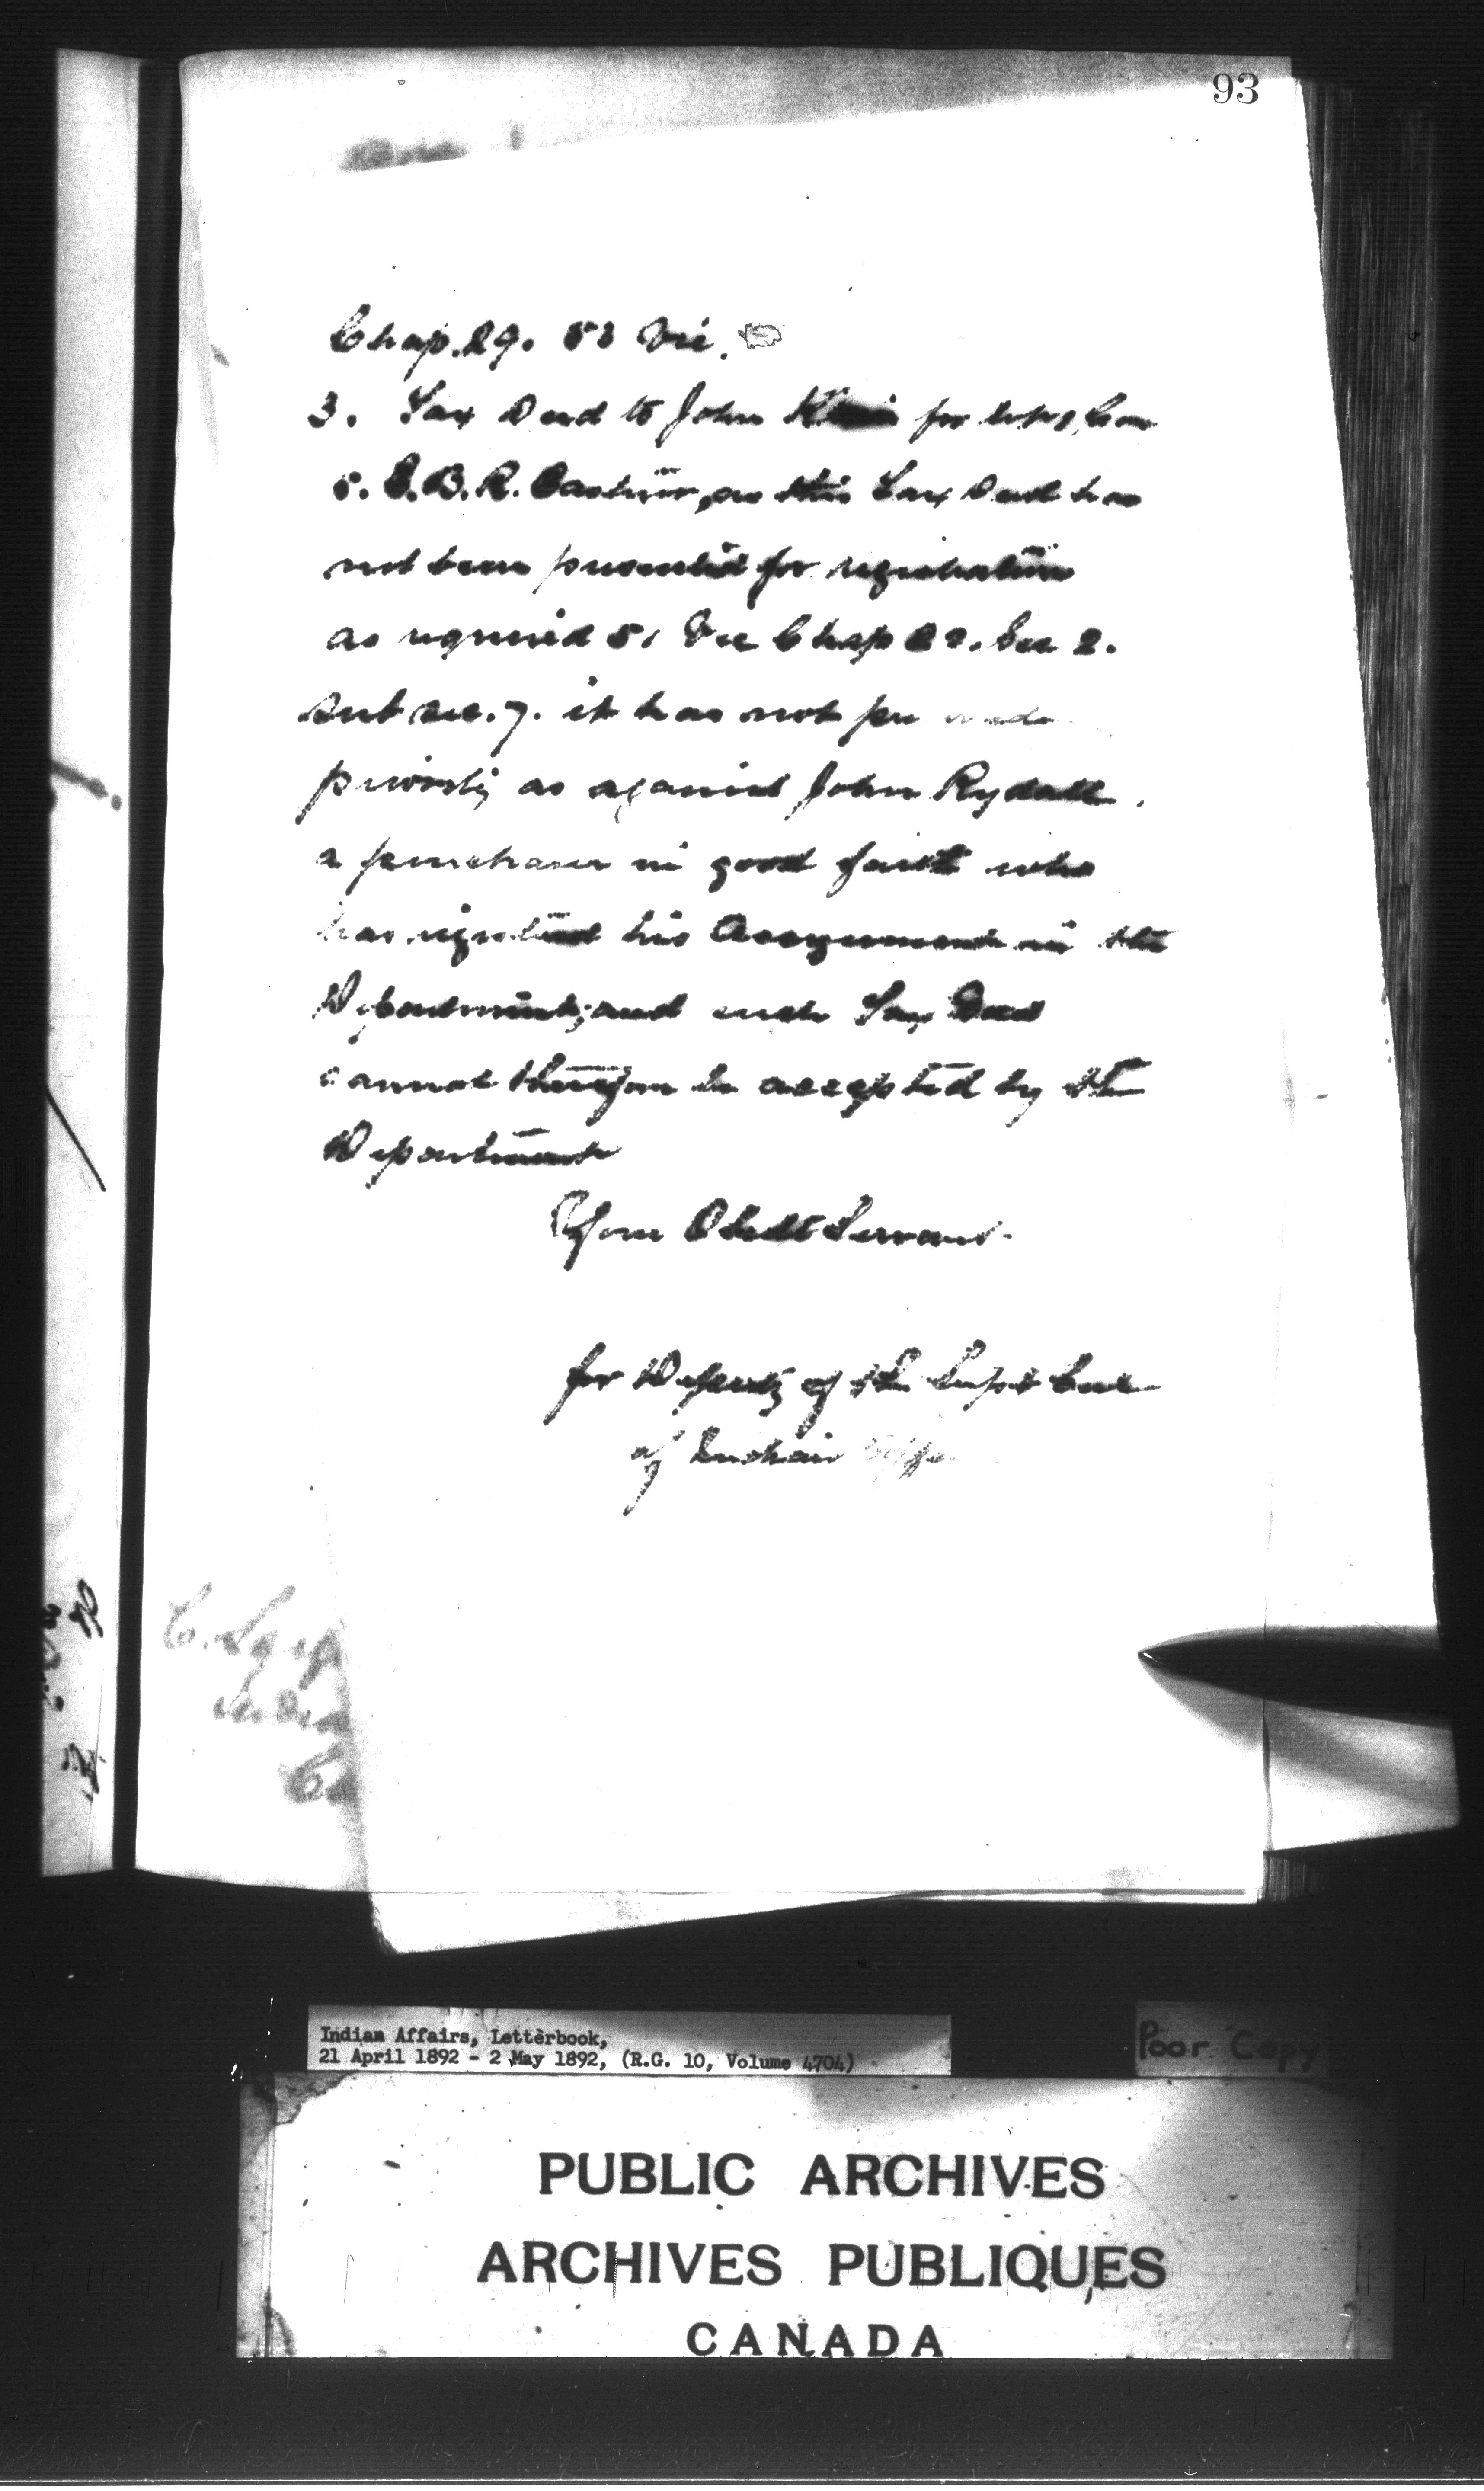 93
Chap. 29. 53 Vic.
3. Tax Deed to John for Lot 1, Con
5. E.B.R. Eastnor, as this Tax Deed has
not been presented for registration
as required 51 Vic Chap 22. Sec 2.
sub sec. 7. it has not
priority as against John Rydall,
a purchaser in good faith who
has registered his Assignment in the
Department; and such Tax Deed
cannot therefore be accepted by the
Department
Your Obedt Servant.
for Deputy of the Supt Genl
of Indian Affs
C. 
India
Indian Affairs, Letterbook,
21 April 1892 - 2 May 1892, (R.G. 10, Volume 4704)
Poor Copy
PUBLIC ARCHIVES
ARCHIVES PUBLIQUES
CANADA